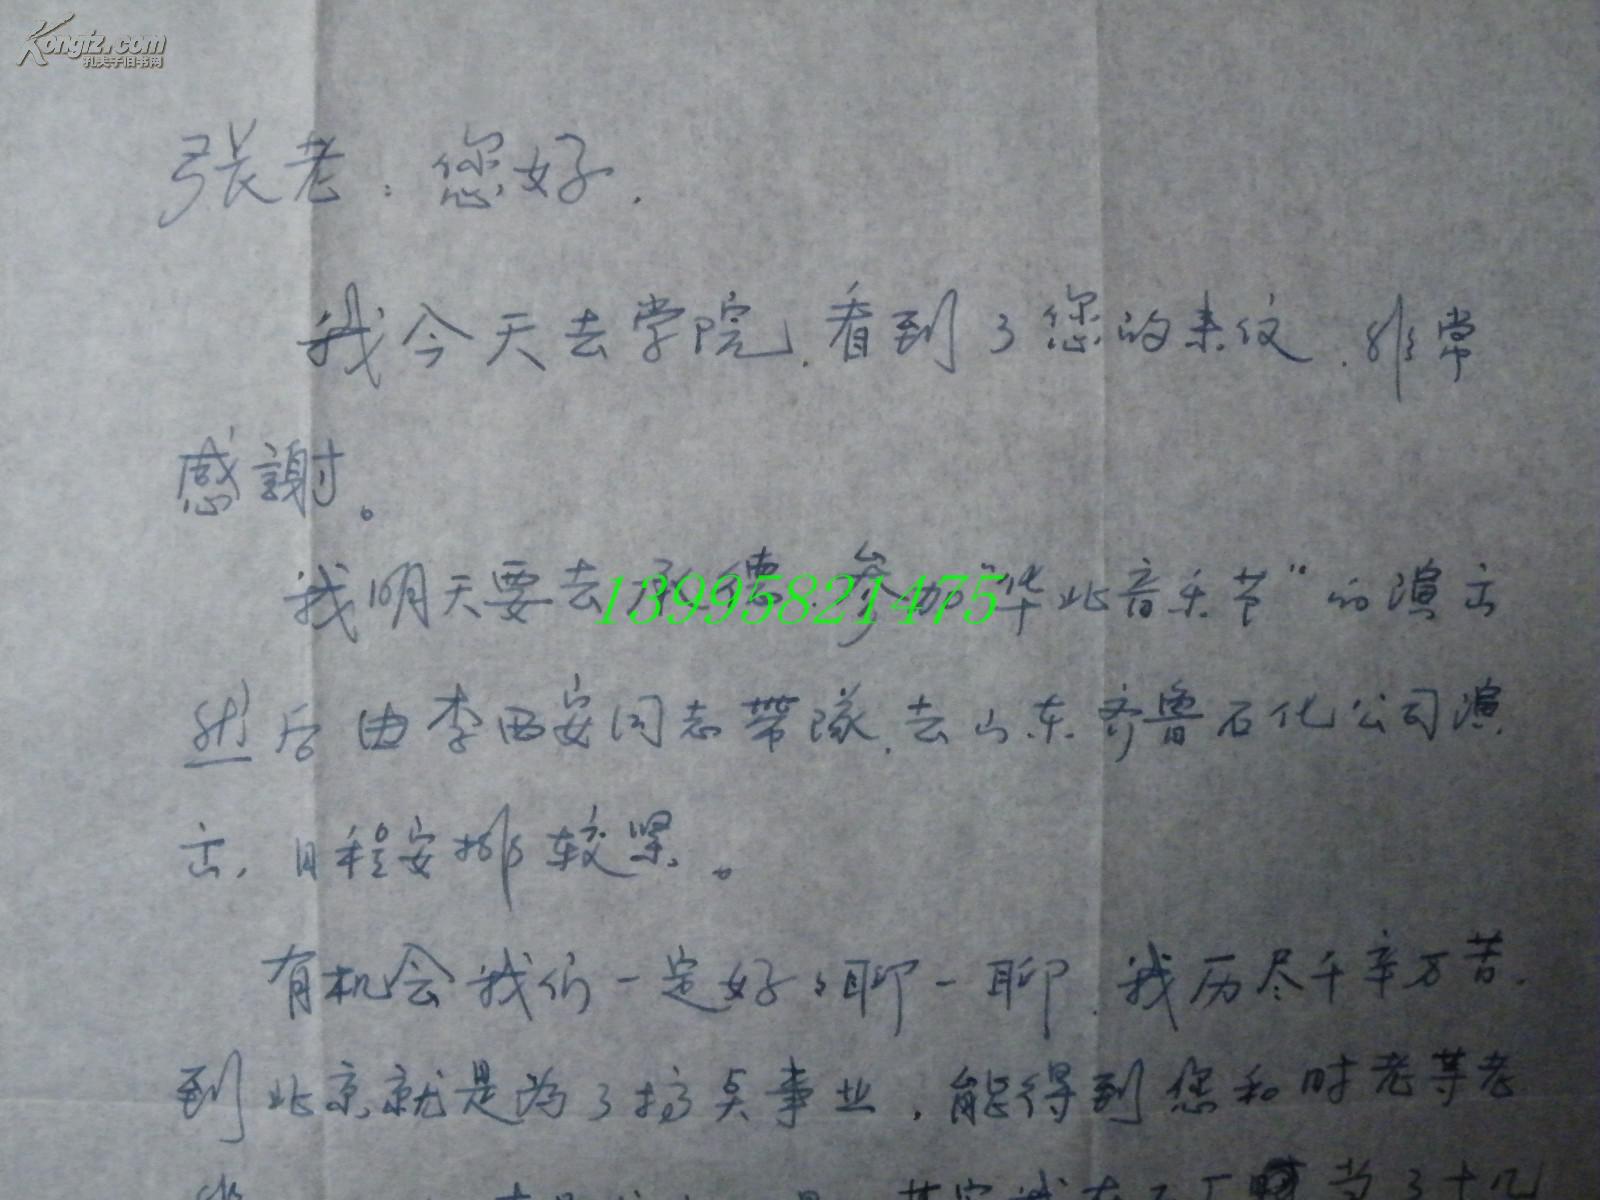 Kongfz.com
孔夫子旧书网
张老：您好.
我今天去学院,看到了您的来仪.非常
感謝。
我明天要去承德.参加"华北音乐节"的演出
然后由李西安同志带隊.去山东齐鲁石化公司演
出,日程安排较紧。
13995821475
有机会我们一定好々聊一聊.我历尽千辛万苦.
到北京就是为了搞点事业,能得到您和时老等老
其实我在工厂当了十几